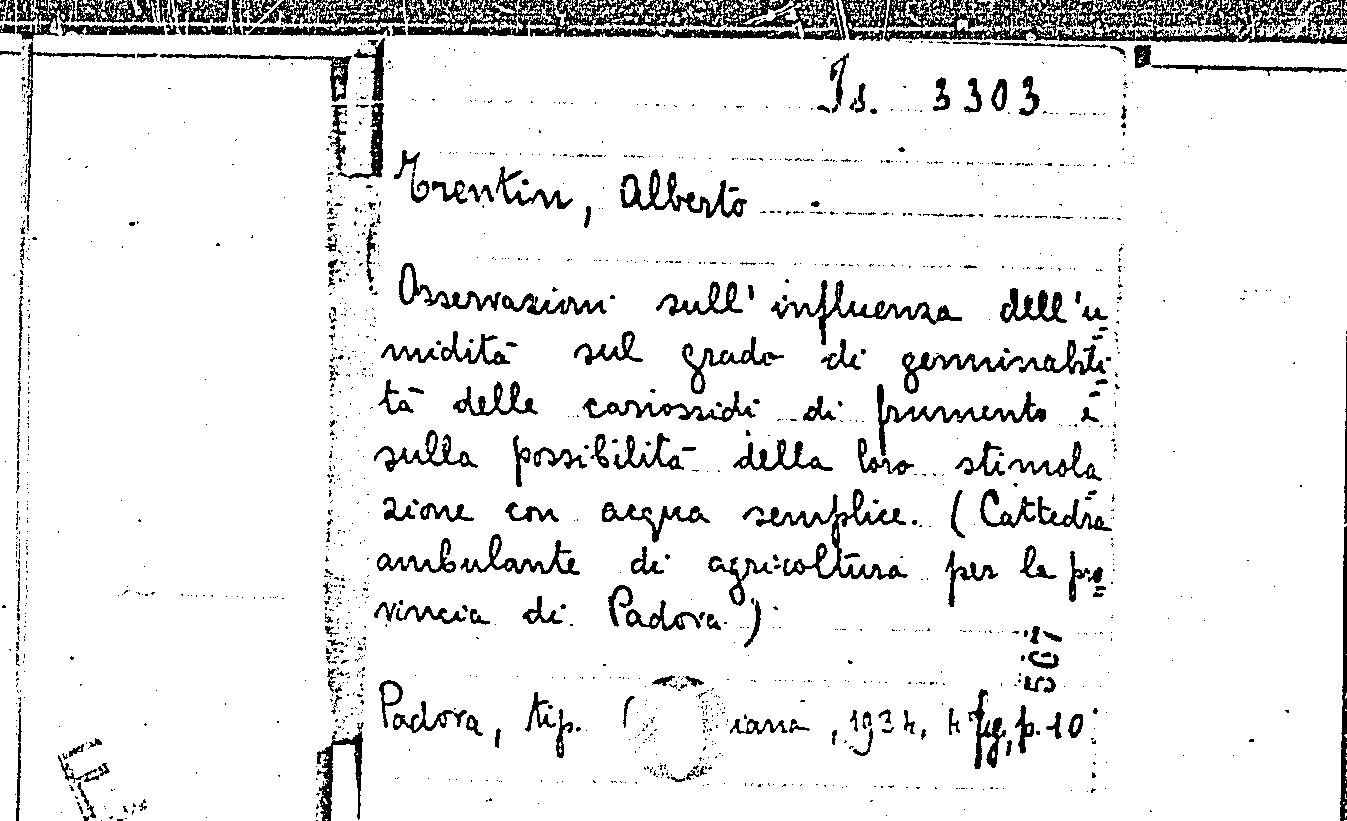 Is. 3303
Trentin, Alberto
Osservazioni sull'influenza dell'u=
midità sul grado di germinabili=
tà delle cariossidi di frumento e
sulla possibilità della loro stimola
zione con acqua semplice. (Cattedra
ambulante di agricoltura per la pro=
vincia di Padova)
507
Padova, tip. 1934, 4° fig, p. 10